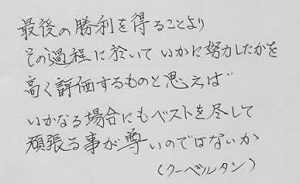 最後の勝利を得ることより
その過程に於いていかに努力したかを
高く評価するものと思えば
いかなる場合にもベストを尽して
頑張る事が尊いのではないか
(クーベルタン)